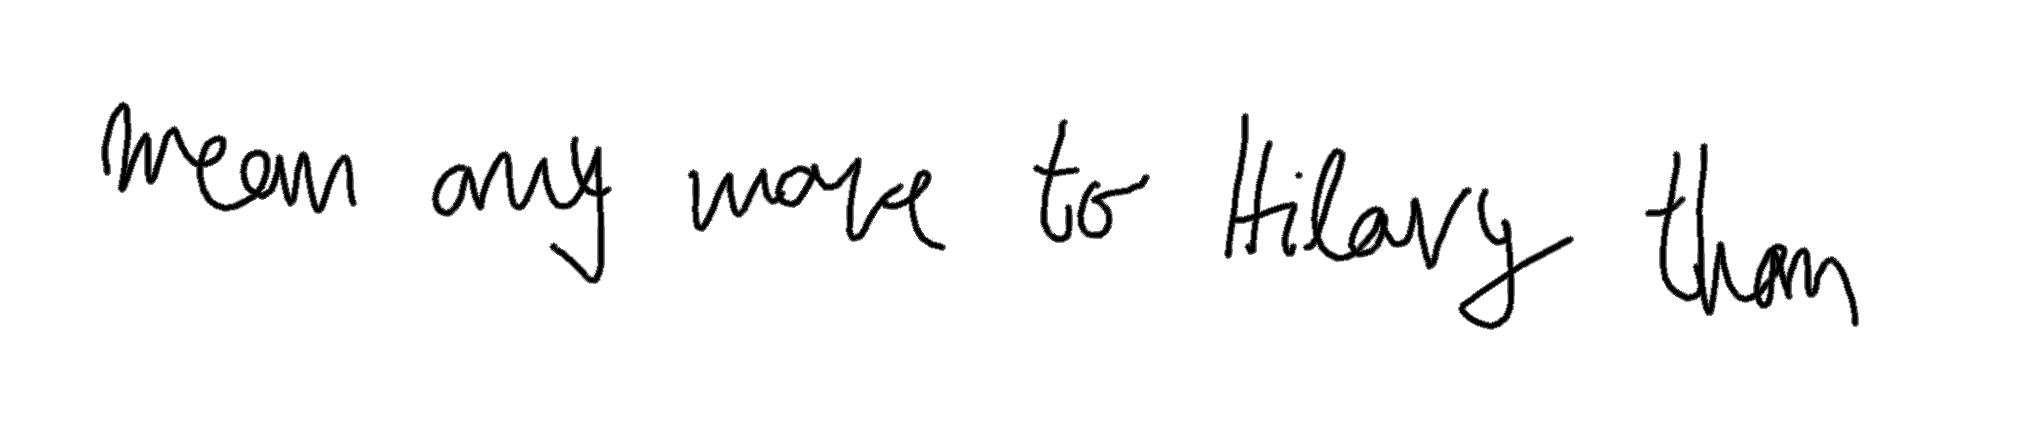 mean any more to Hilary than